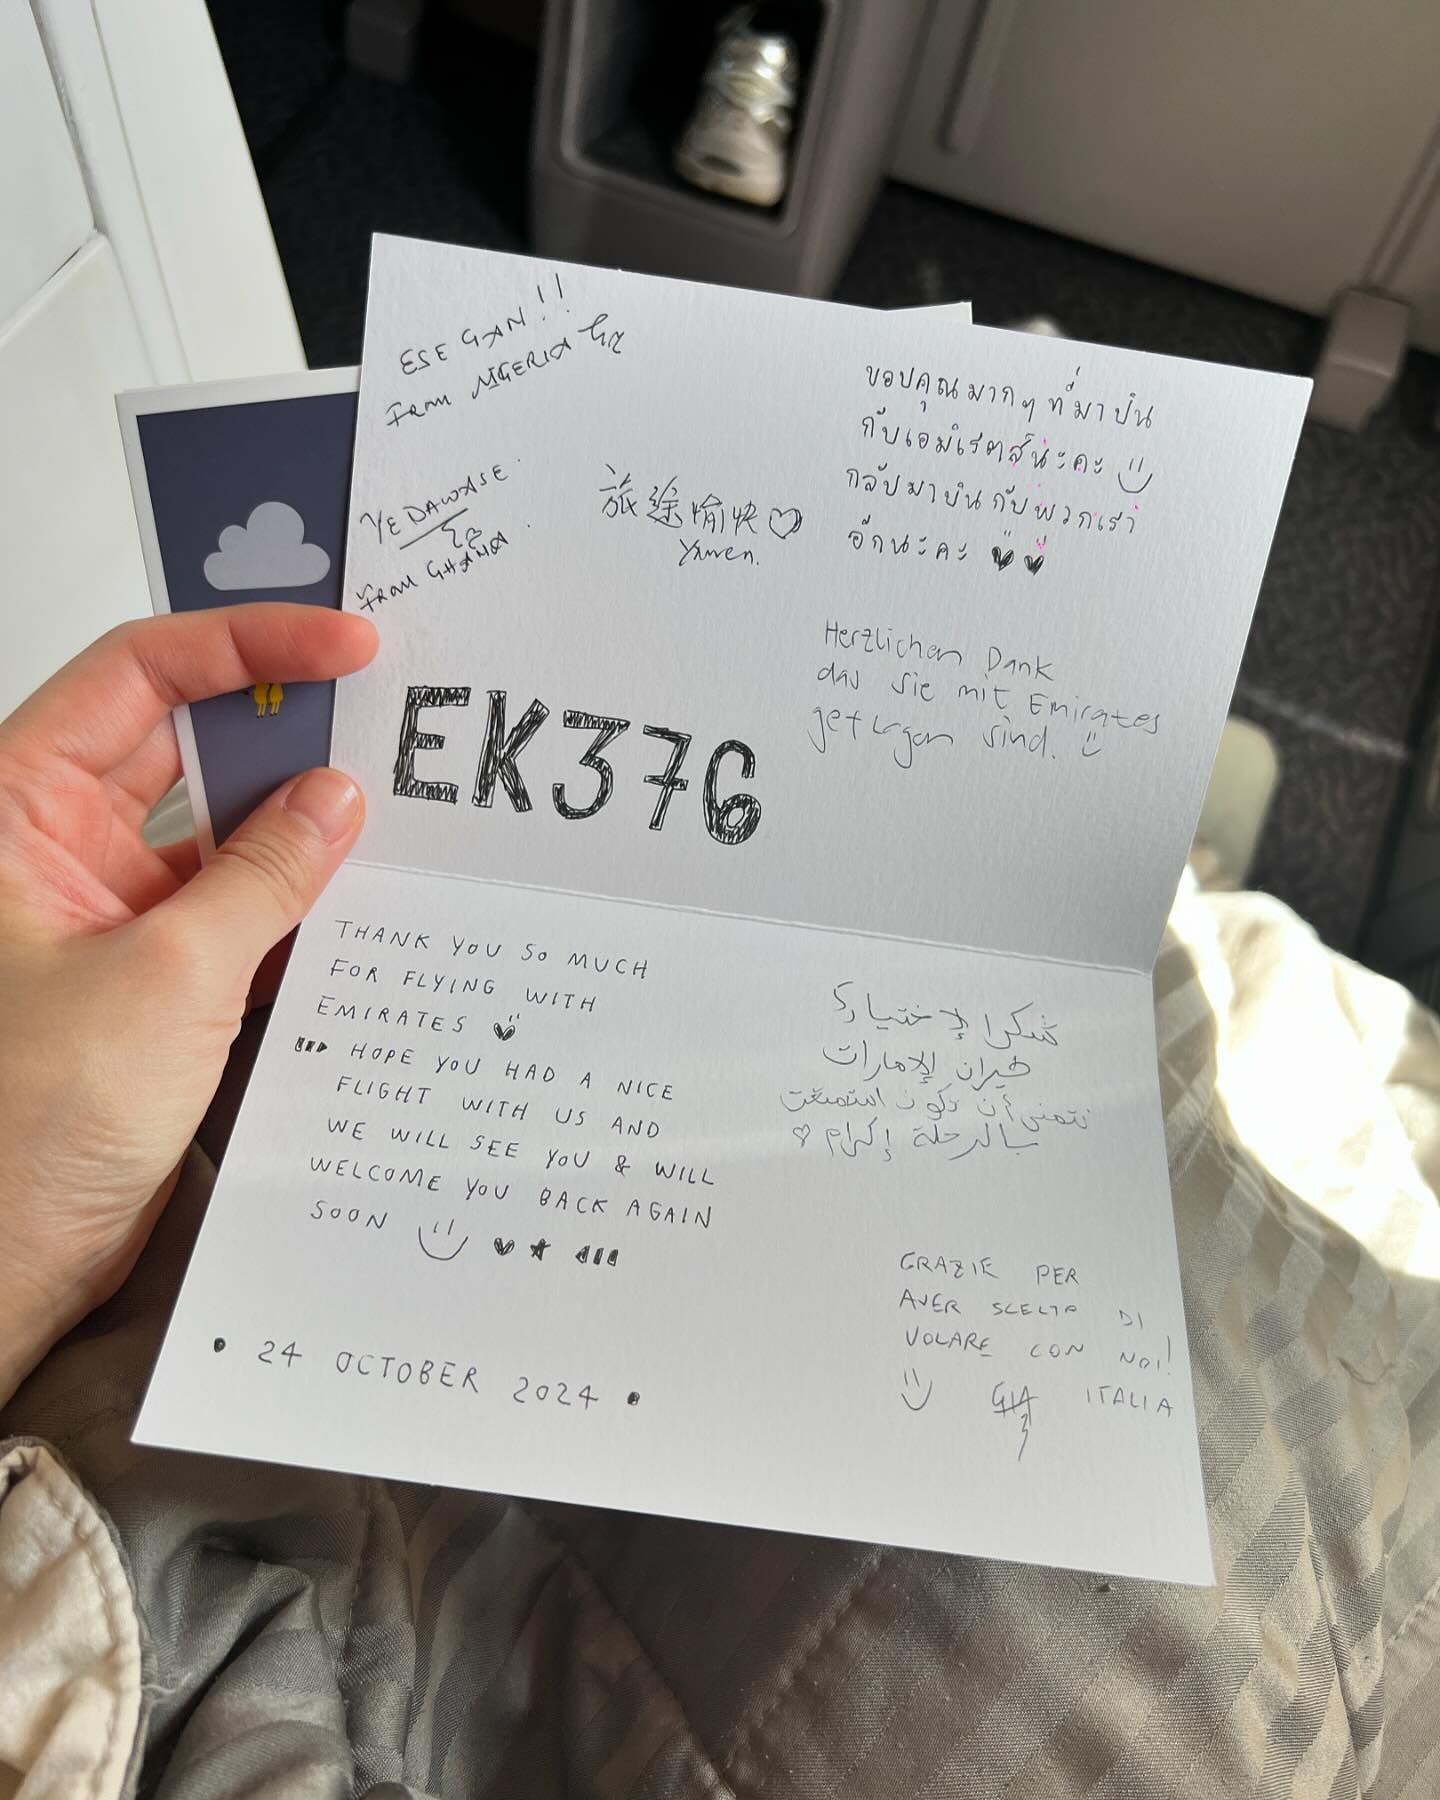 ESE GAN!!
FROM NIGERIA
YE DAWASE.
FROM GHANA.
旅途愉快♡
Yawen.
ขอบคุณมากๆที่มาบิน
กับเอมิเรตส์นะคะ
กลับมาบินกับพวกเรา
อีกนะคะ
Herzlichen Dank
das sie mit Emirates
geflogen sind.
EK376
THANK YOU SO MUCH
FOR FLYING WITH
EMIRATES
HOPE YOU HAD A NICE
FLIGHT WITH US AND
WE WILL SEE YOU & WILL
WELCOME YOU BACK AGAIN
SOON
• 24 OCTOBER 2024 •
شكرا لإختيارك
طيران الإمارات
نتمنى أن تكون استمتعت
بالرحلة إكرام ♡
GRAZIE PER
AVER SCELTO DI
VOLARE CON NOI!
GIA ITALIA